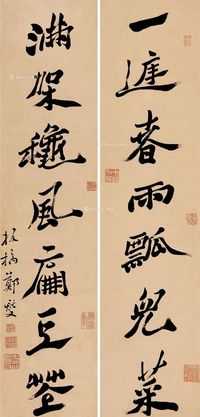 一庭春雨瓢兒菜
滿架穐風扁豆花
板橋鄭燮